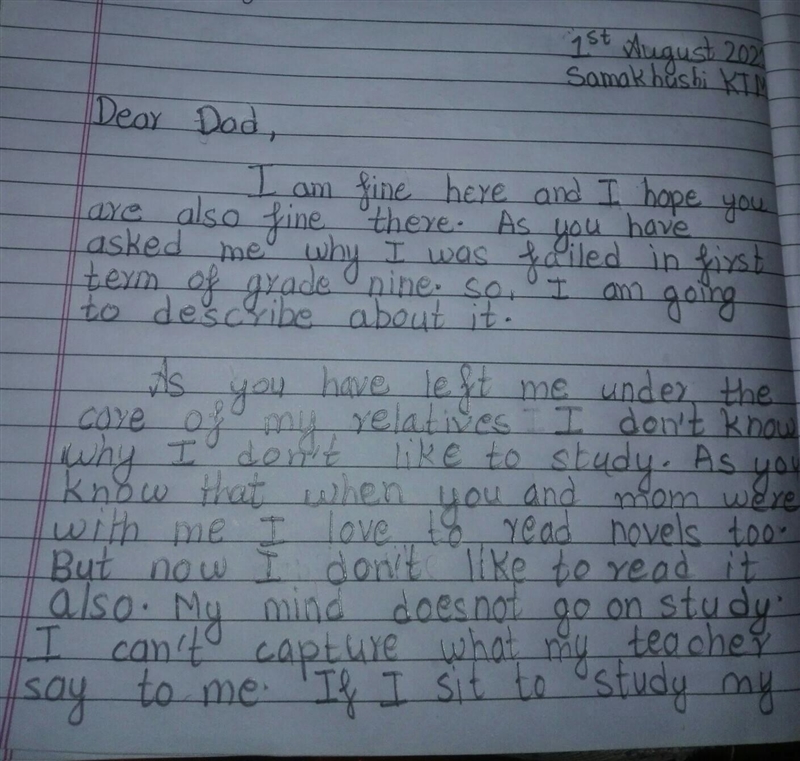 1st August 202
Samakhushi KTM
Dear Dad,
I am fine here and I hope you
are also fine there. As you have
asked me why I was failed in first
term of grade nine. so, I am going
to describe about it.
As you have left me under the
care of my relatives I don't know
why I don't like to study. As you
know that when you and mom were
with me I love to read novels too.
But now I don't like to read it
also. My mind doesnot go on study.
I can't capture what my teacher
say to me. If I sit to study my